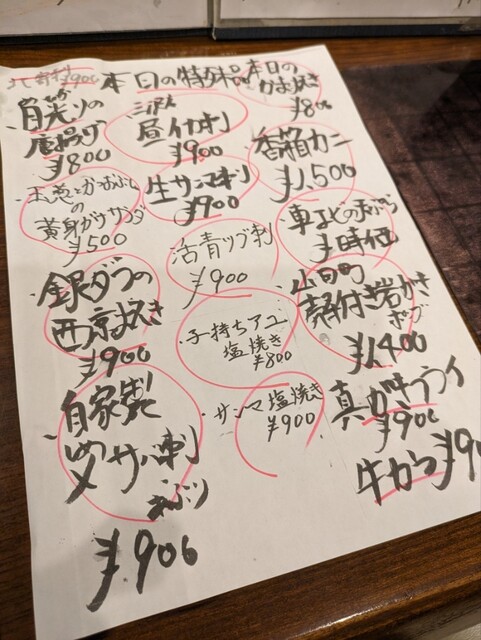 本日の特殊品
¥900
目光りの
唐揚げ
¥800
玉葱とかつおぶしの
黄身がけサラダ
¥500
銀ダラの
西京焼き
¥900
自家製
〆サバ刺
炙り
¥900
三沢産
昼イカ刺
¥900
生サンマ刺
¥900
活青ツブ刺
¥900
子持ちアユ
塩焼き
¥800
サンマ塩焼き
¥900
本日の
かま焼き
¥800
香箱カニ
¥1,500
車エビの天ぷら
¥時価
山田町
殻付き岩がき
ポン酢
¥1,400
真ガキフライ
¥900
牛カツ¥90